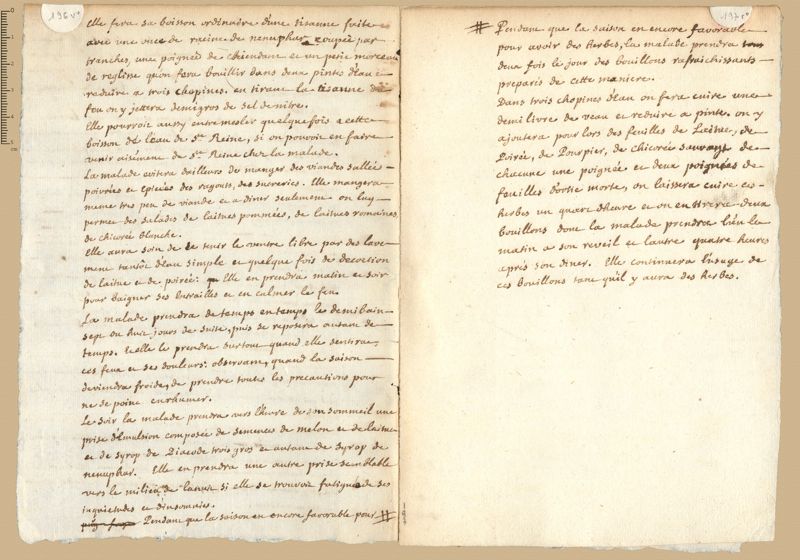 196 v°
Elle fera sa boisson ordinaire d'une tisanne faite
avec une once de racine de nenuphar coupée par
tranches, une poignée de chiendant et un petit morceau
de reglise qu'on fera bouillir dans deux pintes d'eau et
reduire a trois chopines, en tirant la tisanne du
feu on y jettera demigros de sel de nitre.
Elle pourroit aussy entremesler quelquefois a cette
boisson de l'eau de Ste Reine, si on pouvoit en faire
venir aisement de Ste Reine chez la malade.
La malade evitera d'ailleurs de manger des viandes sallées
poivrées et epicées des ragouts, des sucreries. Elle mangera
mesme tres peu de viande et a diner seulement on luy
permet des salades de laitues pommées, de laitues romaines,
de chicorée blanche.
Elle aura soin de se tenir le ventre libre par des lave-
ment tantôt d'eau simple et quelque fois de decoction
de laitue et de poirée. Elle en prendra matin et soir
pour baigner ses entrailles et en calmer le feu.
La malade prendra de temps en temps le demibain
sept ou huit jours de suite, puis se reposera autant de
temps. Et elle le prendra surtout quand elle sentira
ces feux et ses douleurs. observant, quand la saison
deviendra froide, de prendre toutes les precautions pour
ne de point enrhumer.
Le soir la malade prendra vers l'heure de son sommeil une
prise d'emulsion composée de semences de melon et de laitue
et de syrop de Diacode trois gros et autant de syrop de
nenuphar. Elle en prendra une autre prise semblable
vers le milieu de la nuit si elle se trouvoit fatiguée de ses
inquietudes et d'insomnies.
Pendant que la saison est encore favorable pour #
197 r°
# Pendant que la saison est encore favorable
pour avoir des herbes, la malade prendra
deux fois le jour des bouillons rafraichissants
preparés de cette maniere.
Dans trois chopines d'eau on fera cuire une
demi livre de veau et reduire a pinte. on y
ajoutera pour lors des feuilles de Laitue, de
Poirée, de Pourpier, de chicorée sauvage de
chacune une poignée et deux poignées de
feuilles d'ortie morte, on laissera cuire ces
herbes un quart d'heure et on en tirera deux
bouillons dont la malade prendra l'un le
matin a son reveil et l'autre quatre heures
après son diner. Elle continuera l'usage de
ces bouillons tant qu'il y aura des herbes.